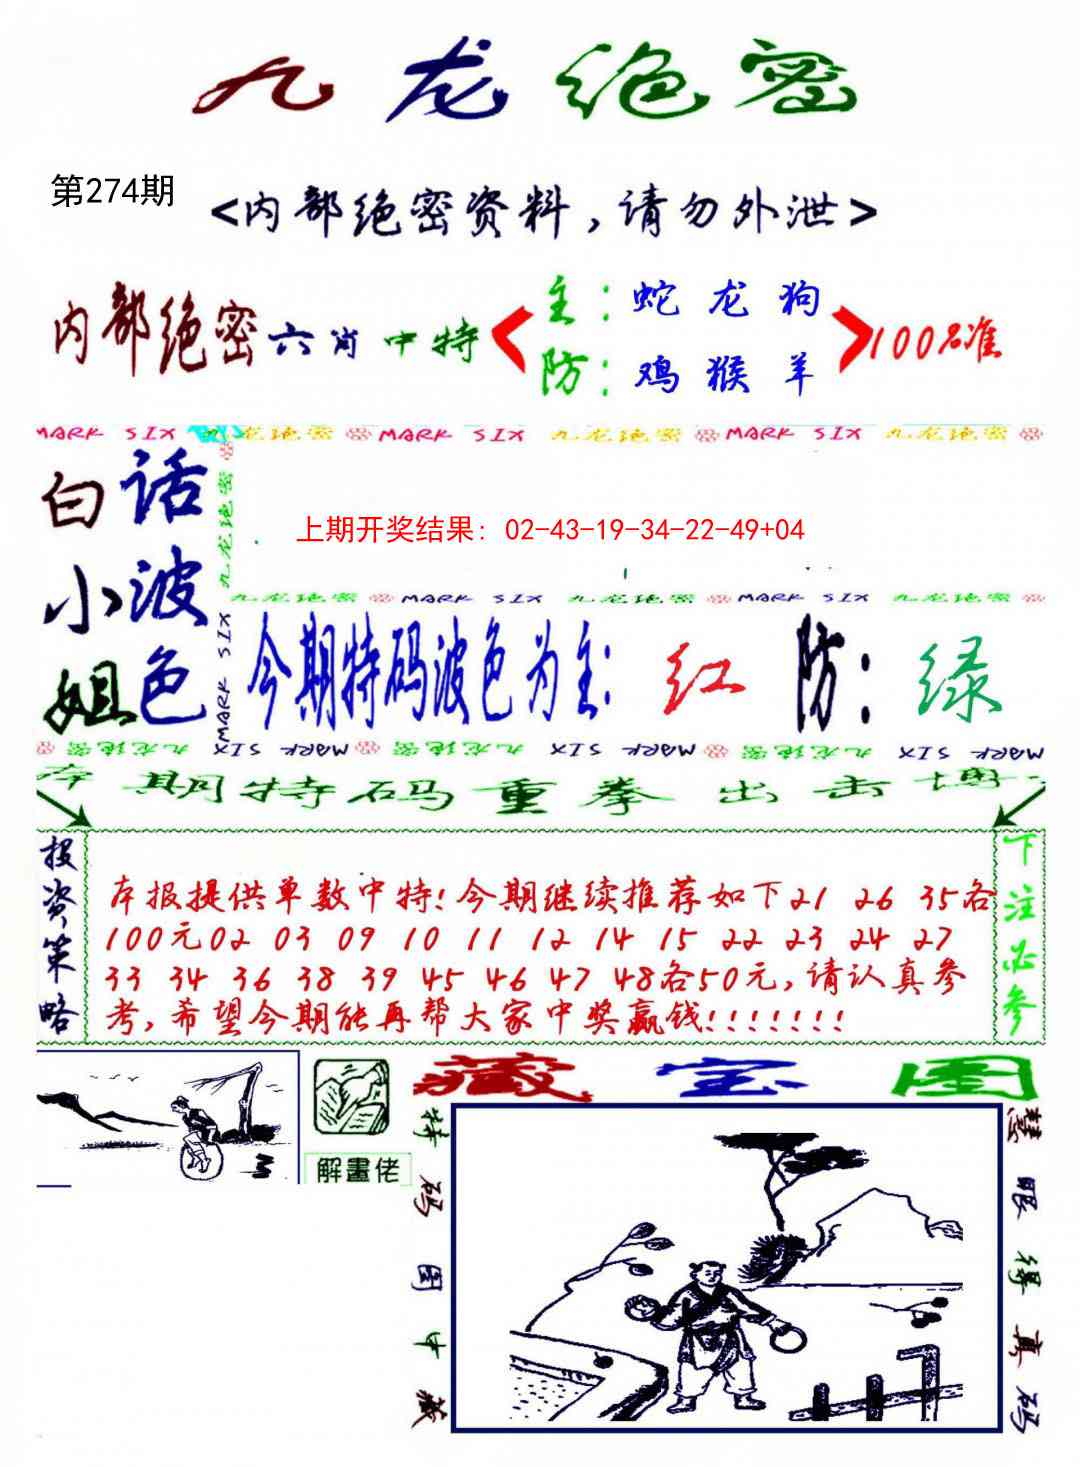 九龙绝密
第274期
<内部绝密资料,请勿外泄>
内部绝密六肖中特
主:蛇 龙 狗
防:鸡 猴 羊
100%准
MARK SIX 九龙绝密 MARK SIX 九龙绝密 MARK SIX 九龙绝密
九龙绝密 MARK SIX
白小姐
话波色
上期开奖结果: 02-43-19-34-22-49+04
九龙绝密 MARK SIX 九龙绝密 MARK SIX 九龙绝密
今期特码波色为主: 红 防: 绿
九龙绝密 MARK SIX 九龙绝密 MARK SIX 九龙绝密 MARK SIX
本期特码重拳出击博
投资策略
本报提供单数中特!今期继续推荐如下21 26 35各
100元02 03 09 10 11 12 14 15 22 23 24 27
33 34 36 38 39 45 46 47 48各50元,请认真参
考,希望今期能再帮大家中奖赢钱!!!!!!!
下注必参
解畫佬
藏宝图
特码图中藏
慧眼得真码